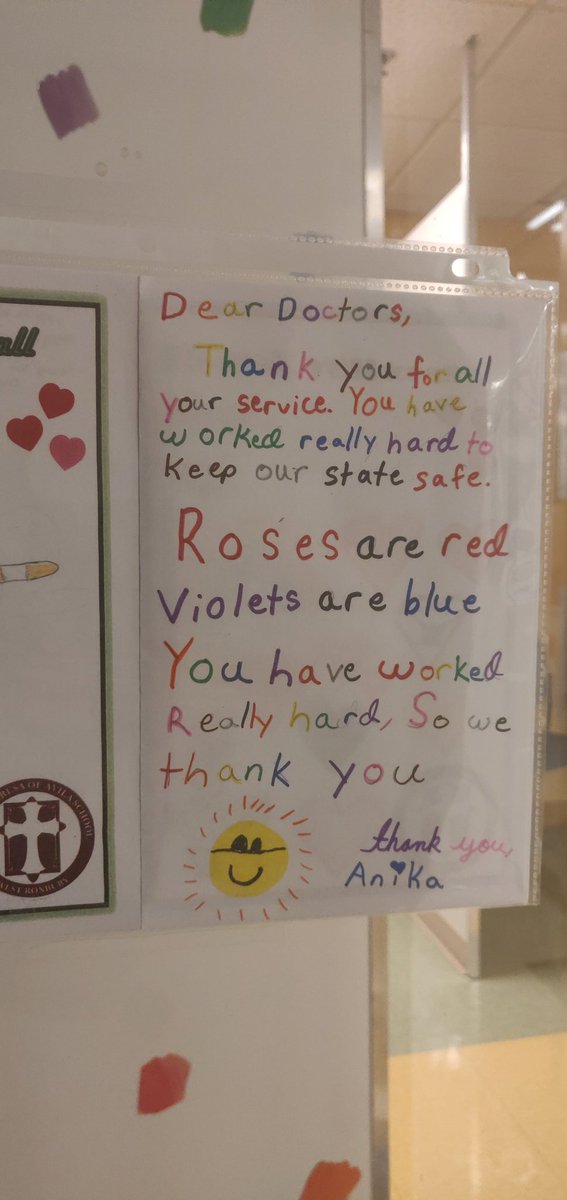 all
Dear Doctors,
Thank you for all
your service. You have
worked really hard to
keep our state safe.
Roses are red
Violets are blue
You have worked
Really hard, So we
thank you
thank you,
Anika
RESA OF AVILA SCHOOL
EST ROXBURY